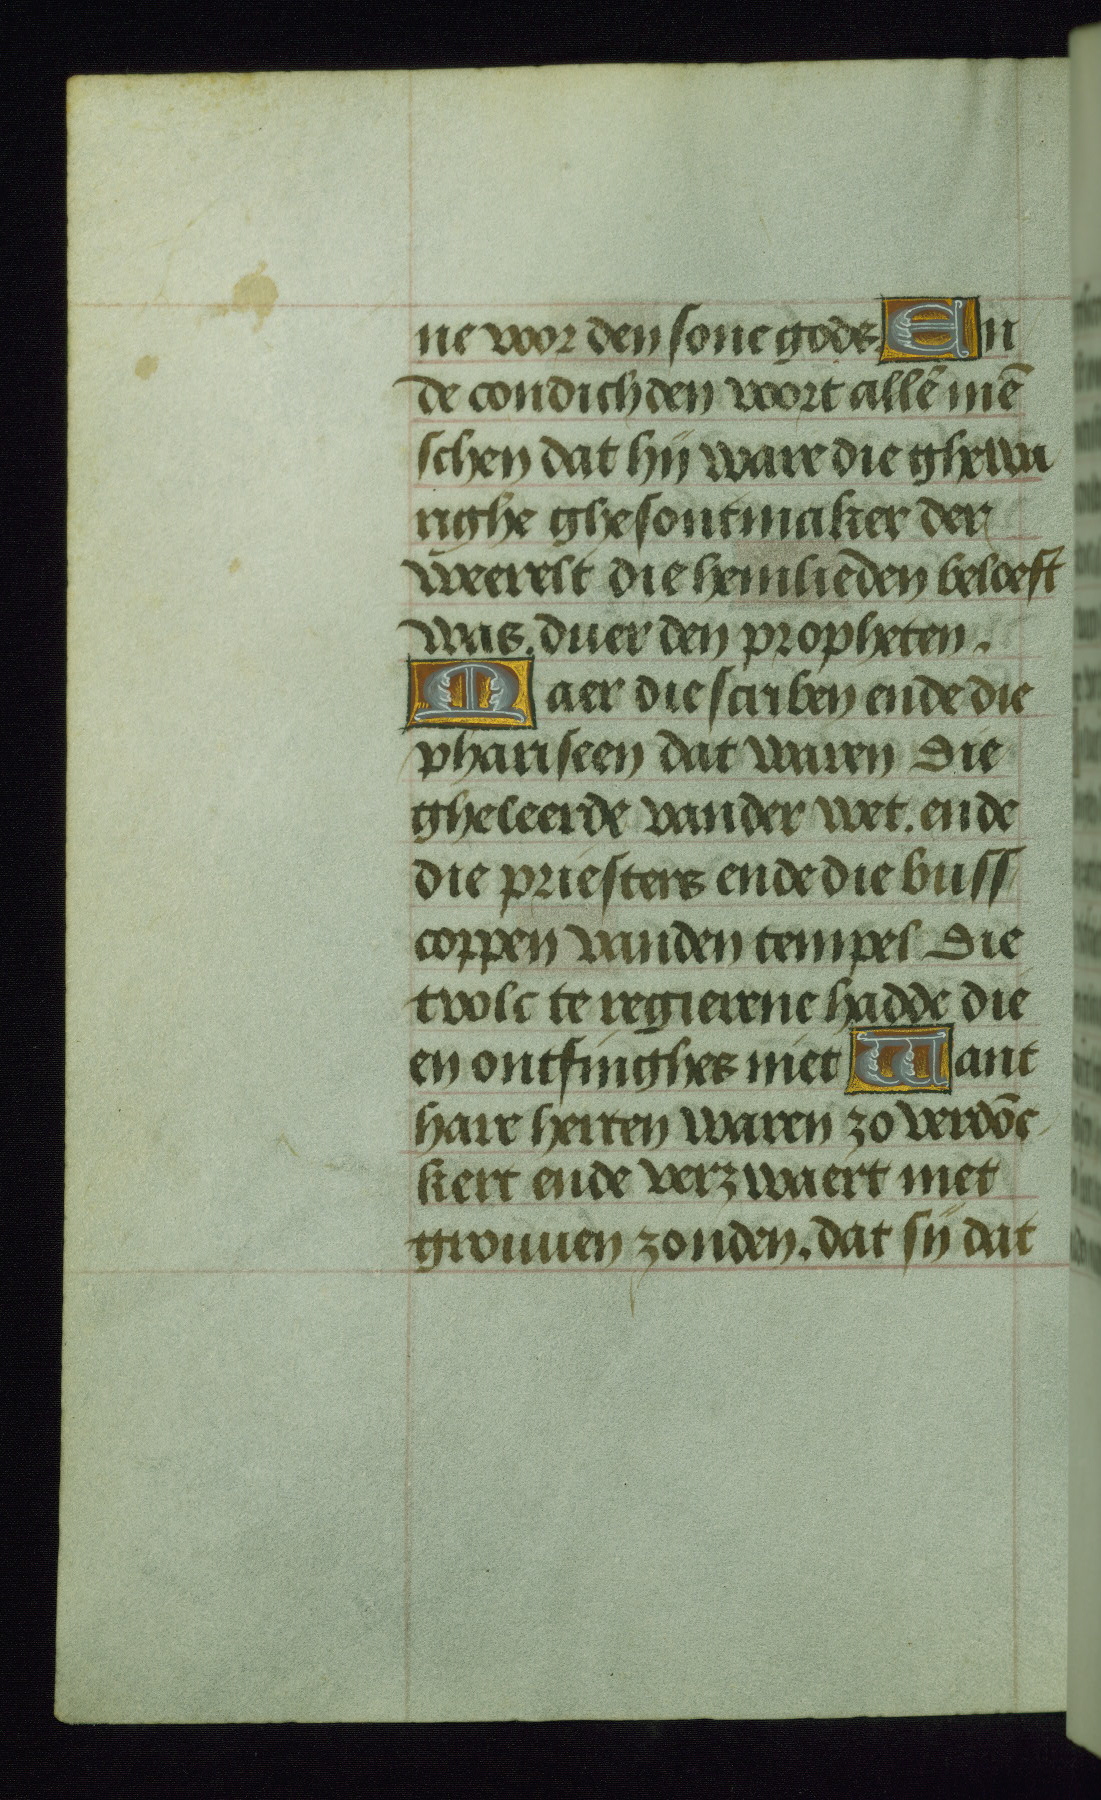 ne vvor den sone gods. En
de condichden voort allē mē
schen dat hij ware die ghewa
righe ghesontmaker der
weerelt die hemlieden beloeft
was. duer den propheten.
Maer die scriben ende die
phariseen dat waren Die
gheleerde vander wet. ende
die priesters ende die buss
coppen vanden tempel Die
tvolc te regierene hadde die
en ontfinghes niet Want
hare herten waren zo verdōc
kert ende verzwaert met
grouuen zonden. dat sij dat